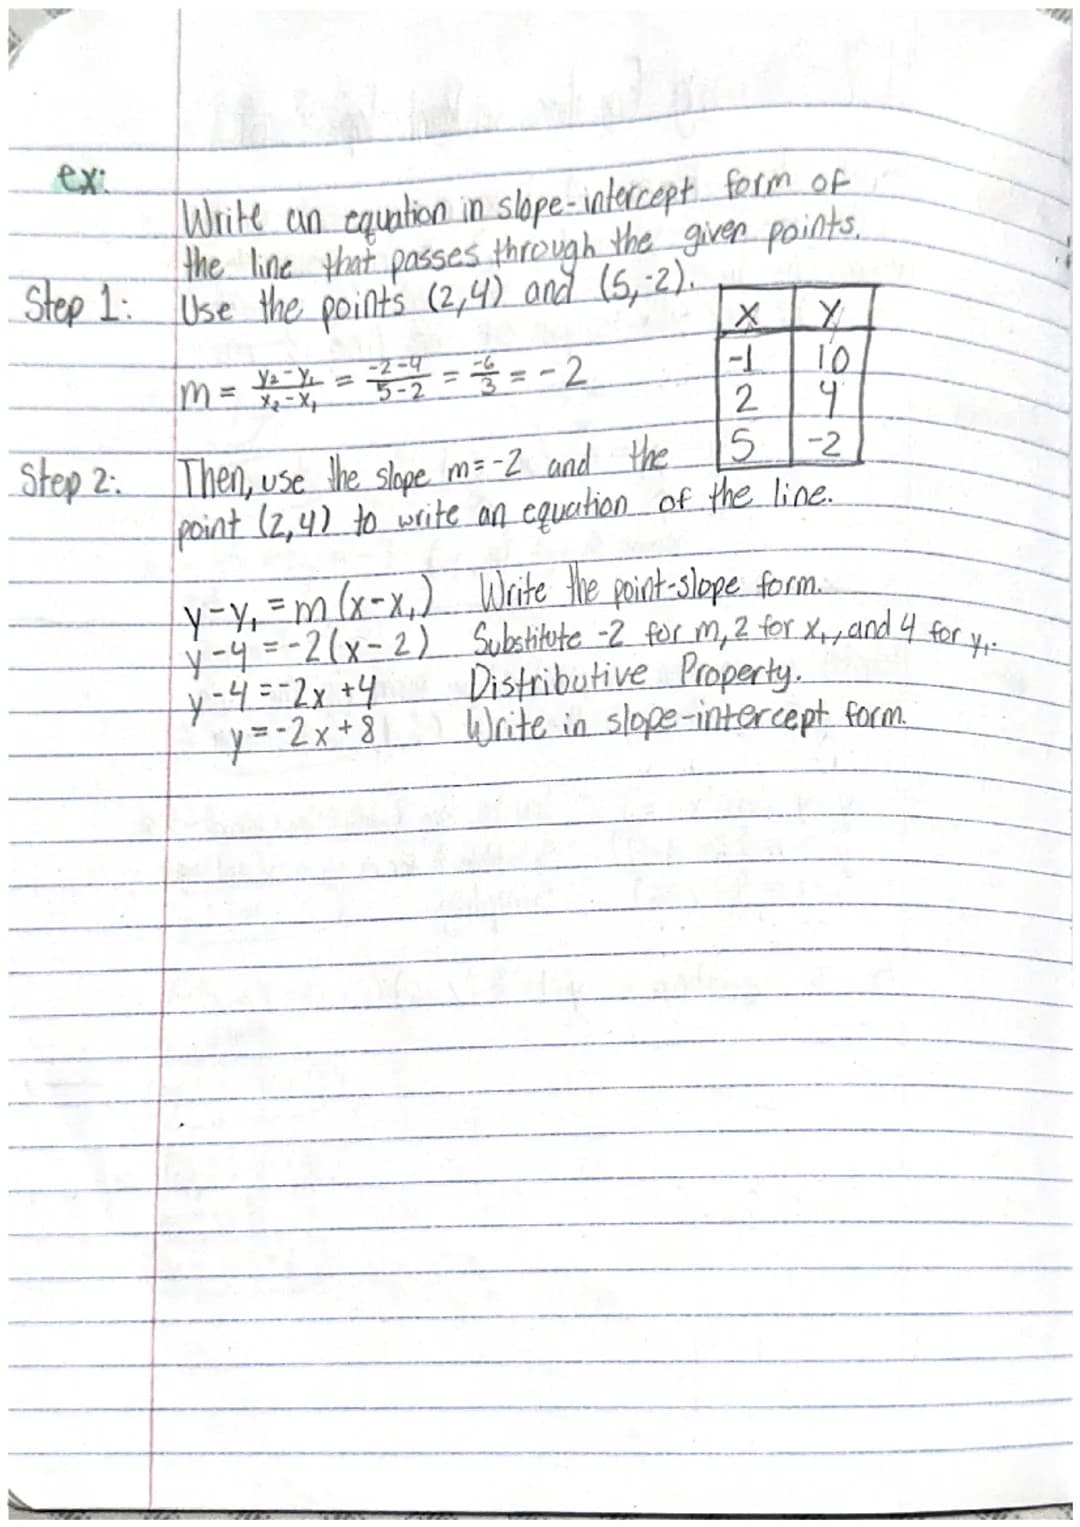 ex:
Write an equation in slope-intercept form of
the line that passes through the given points.
Step 1: Use the points (2,4) and (5,-2).
x y
-1 10
2 4
5 -2
m = y₂-y₁/x₂-x₁ = -2-4/5-2 = -6/3 = -2
Step 2: Then, use the slope m=-2 and the
point (2,4) to write an equation of the line.
y-y₁ = m(x-x₁) Write the point-slope form.
y-4 = -2(x-2) Substitute -2 for m, 2 for x₁, and 4 for y₁.
y-4 = -2x+4 Distributive Property.
y = -2x+8 Write in slope-intercept form.